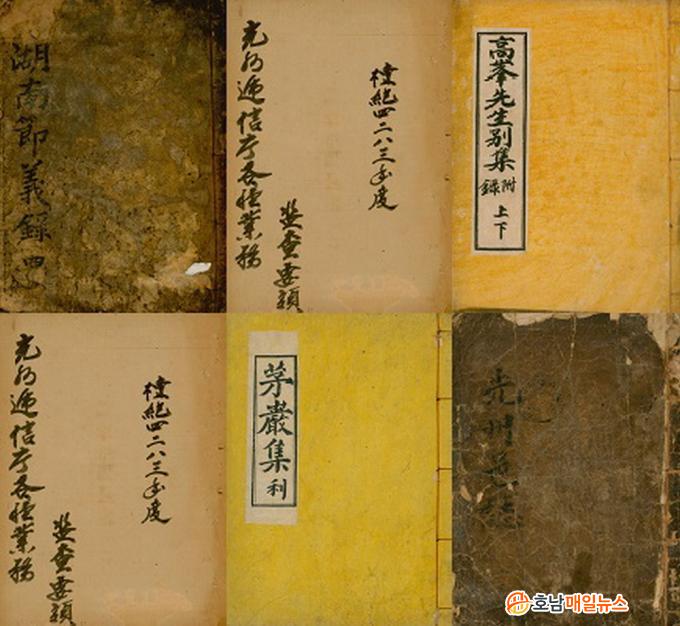 湖南節義錄 四
檀紀四二八三年度
光州遞信庁各種業務
監查要領
高峯先生別集
附錄
上下
檀紀四二八三年度
光州遞信庁各種業務
監查要領
茅巖集 利
光州邑誌
호남매일뉴스